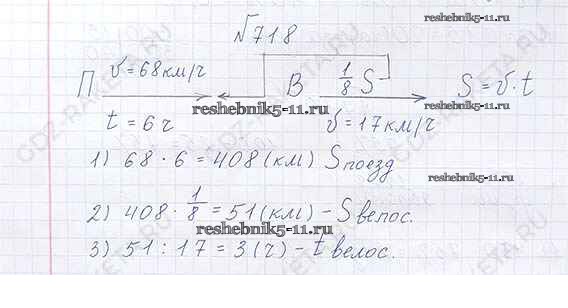 №718
reshebnik5-11.ru
П v = 68 км/ч В 1/8 S S = v · t
reshebnik5-11.ru
reshebnik5-11.ru
t = 6 ч v = 17 км/ч
1) 68 · 6 = 408 (км) S поезд
reshebnik5-11.ru
2) 408 · 1/8 = 51 (км) – S велос.
reshebnik5-11.ru
3) 51 : 17 = 3 (ч) – t велос.
GDZ-RAKETA.RU